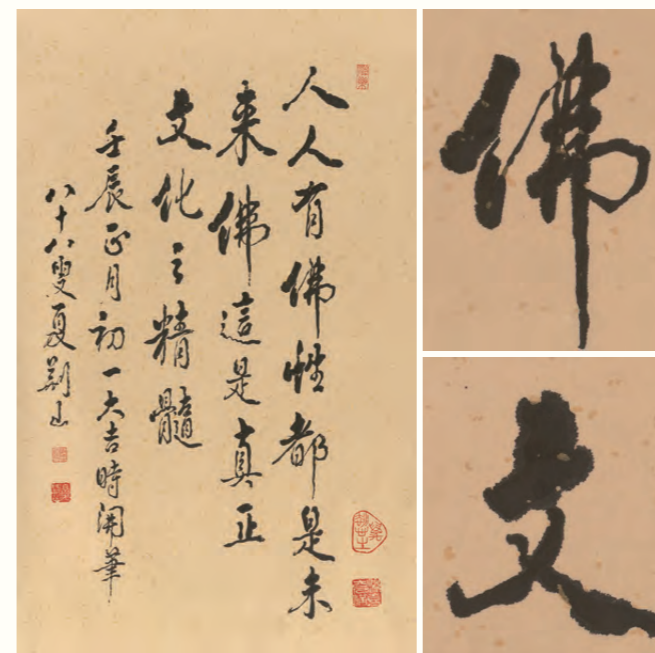 人人有佛性都是未
来佛這是真正
文化之精髓
壬辰正月初一大吉時開筆
八十八叟夏荆山
佛
文